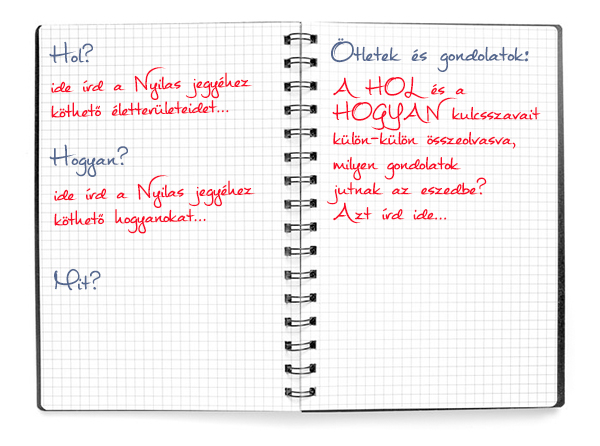 Hol?
ide írd a Nyilas jegyéhez
köthető életterületeidet...
Hogyan?
ide írd a Nyilas jegyéhez
köthető hogyanokat...
Mit?
Ötletek és gondolatok:
A HOL és a
HOGYAN kulcsszavait
külön-külön összeolvasva,
milyen gondolatok
jutnak az eszedbe?
Azt írd ide...